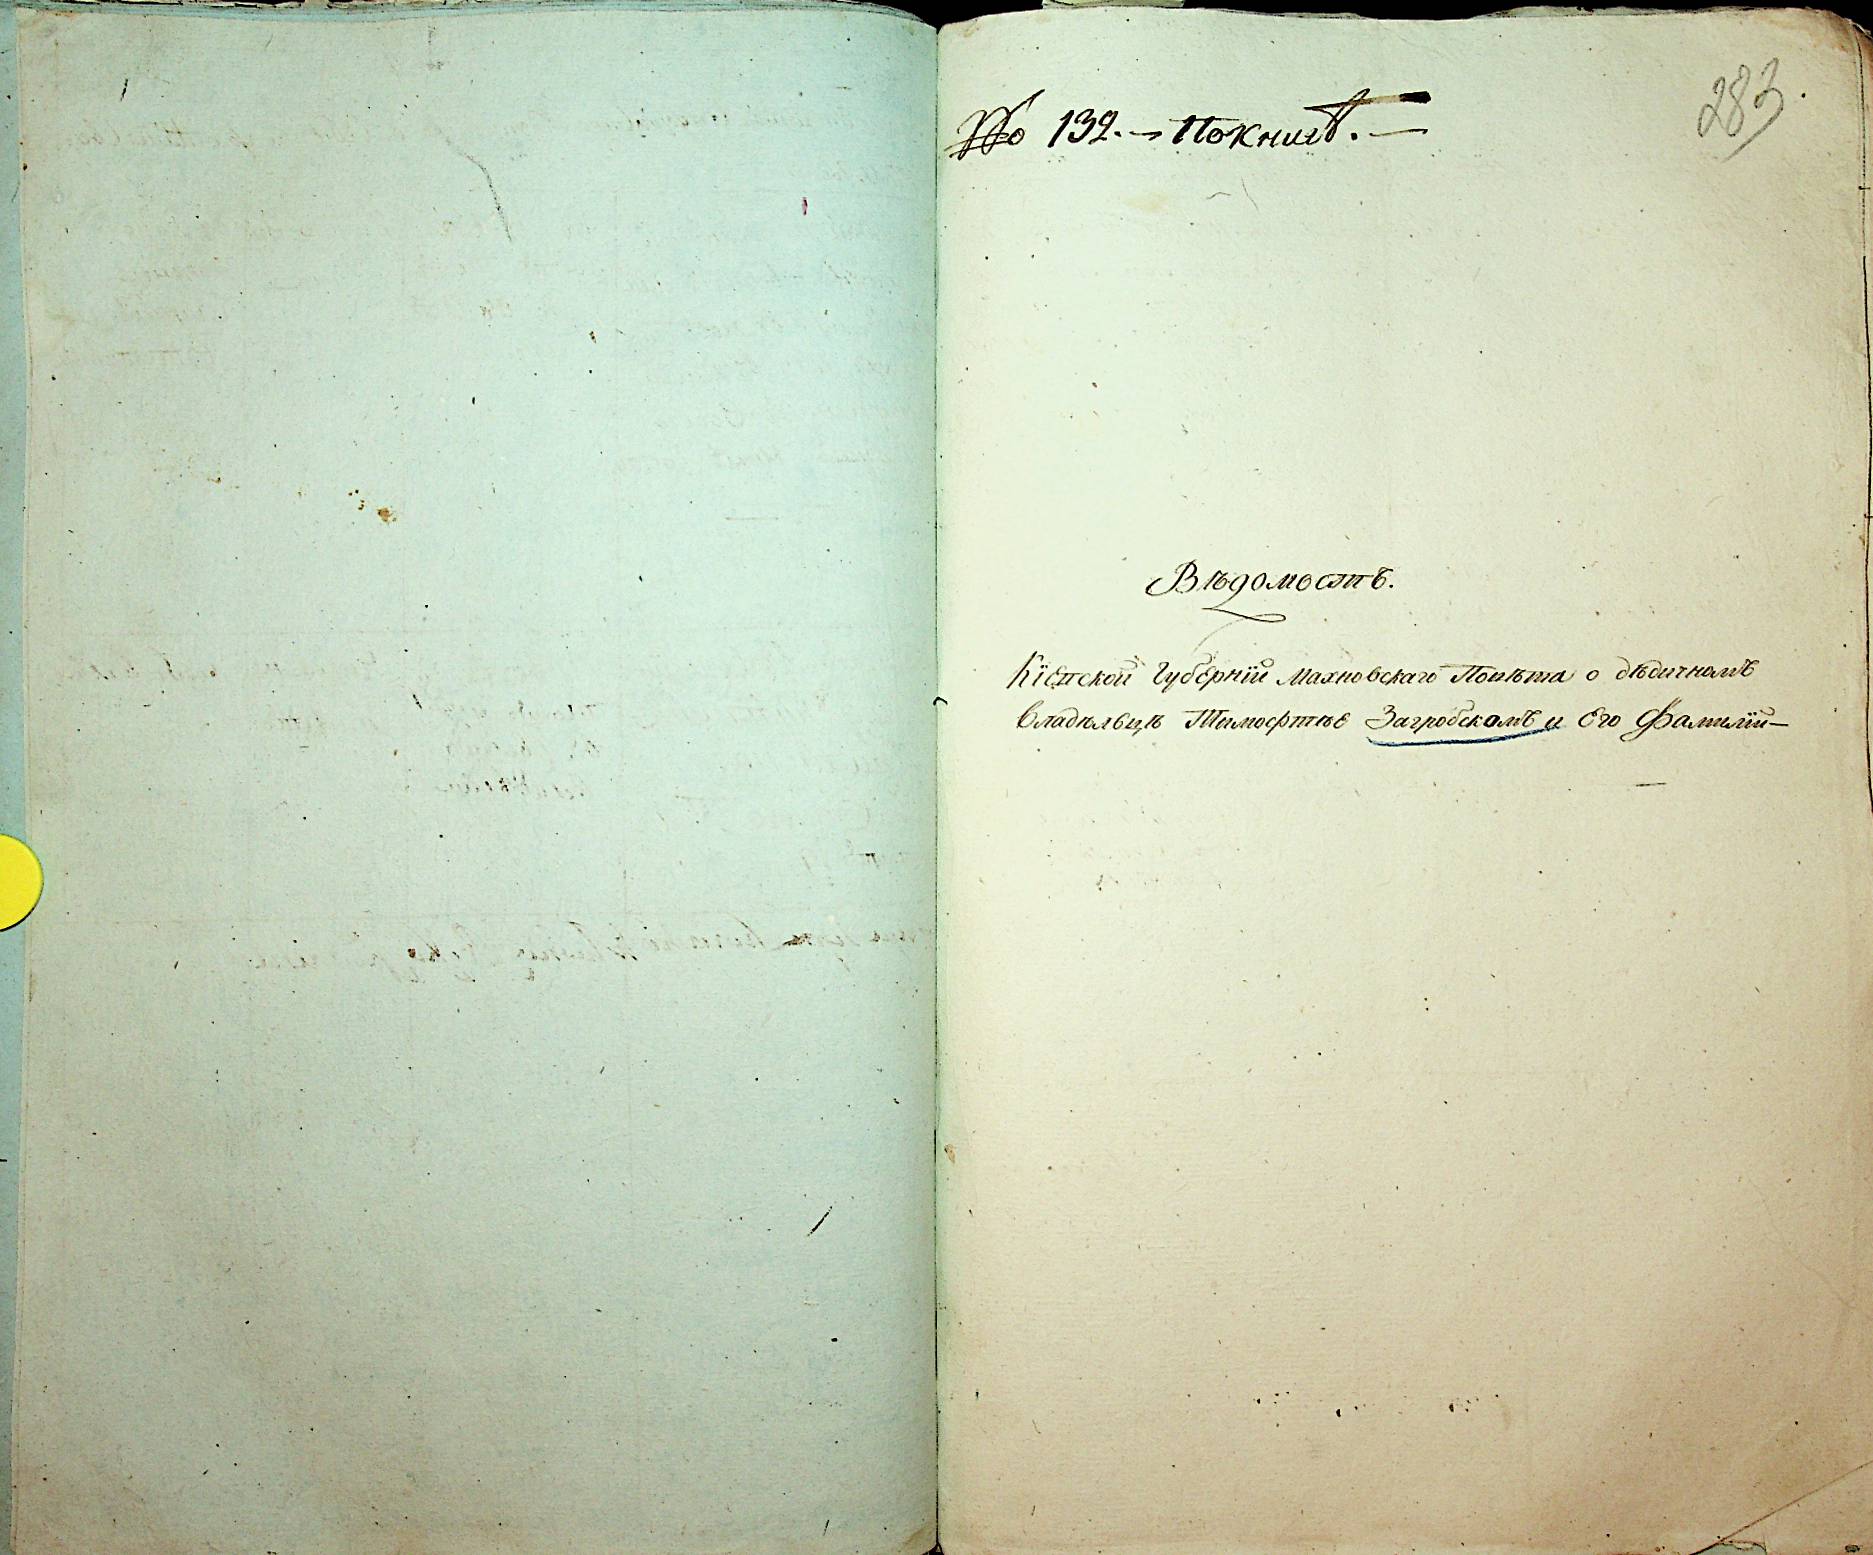 283.
№ 132. — По книгѣ. —
Вѣдомость.
Кіевской Губерніи Махновскаго Повѣта о дѣдичномъ
владѣльцѣ Тимофтѣе Загробскомъ и Его Фамиліи —